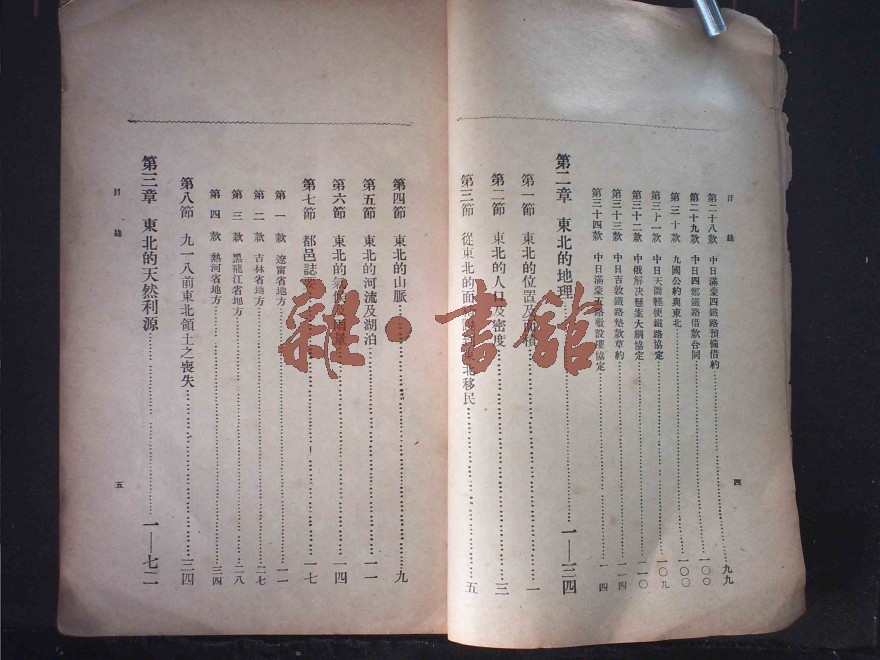 目錄
第二十八款 中日滿蒙四鐵路預備借約……九九
第二十九款 中日四鄭鐵路借款合同……一〇〇
第三十款 九國公約與東北……一〇〇
第三十一款 中日天圖輕便鐵路協定……一〇九
第三十二款 中俄解決懸案大綱協定……一一〇
第三十三款 中日吉敦鐵路墊款草約……一一四
第三十四款 中日滿蒙五路敷設權協定……一一四
第二章 東北的地理……一—三四
第一節 東北的位置及面積……一
第二節 東北的人口及密度……三
第三節 從東北的面積 東北移民……五
四
第四節 東北的山脈……九
第五節 東北的河流及湖泊……一一
第六節 東北的氣候及雨量……一四
第七節 都邑誌要……一七
第一款 遼甯省地方……一一
第二款 吉林省地方……二七
第三款 黑龍江省地方……二八
第四款 熱河省地方……三四
第八節 九一八前東北領土之喪失……三四
第三章 東北的天然利源……一—七二
目錄
五
雜·書館